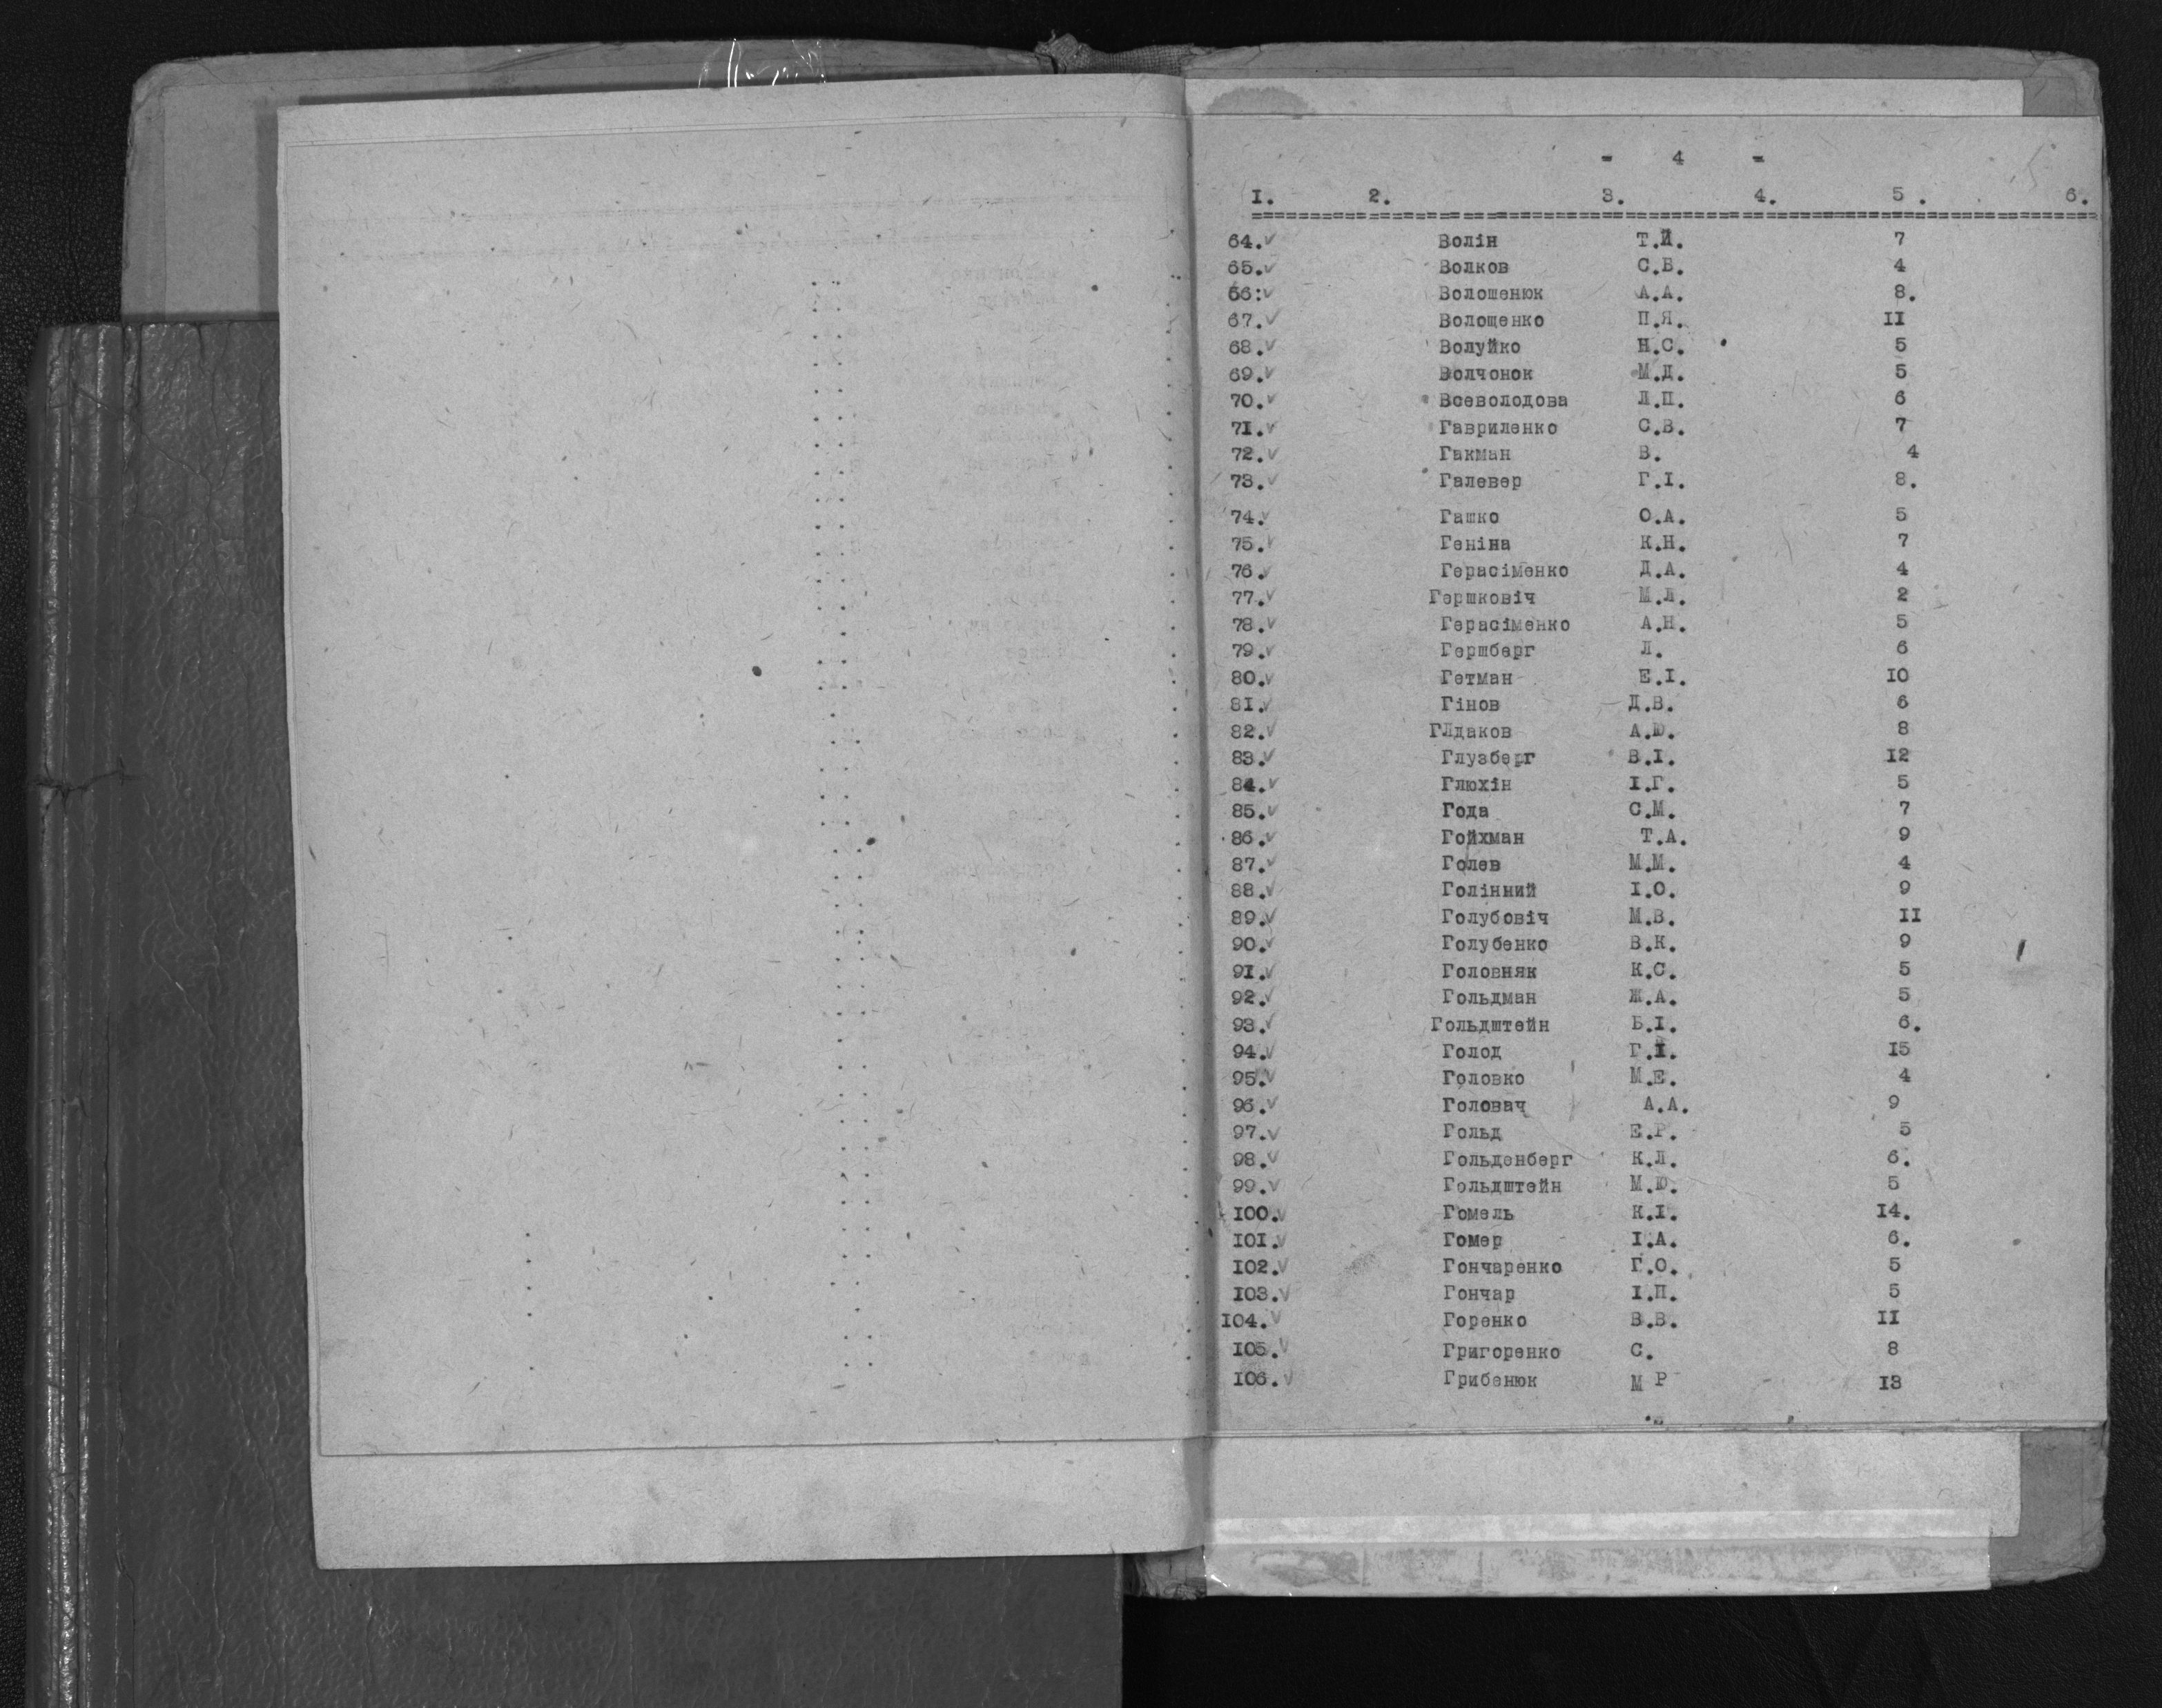 - 4 -
I. 2. 3. 4. 5. 6.
64. Волін Т.Й. 7
65. Волков С.В. 4
66: Волошенюк А.А. 8.
67. Волощенко П.Я. II
68. Волуйко Н.С. 5
69. Волчонок М.Д. 5
70. Всеволодова Л.П. 6
7I. Гавриленко С.В. 7
72. Гакман В. 4
73. Галевер Г.І. 8.
74. Гашко О.А. 5
75. Геніна К.Н. 7
76. Герасіменко Д.А. 4
77. Гершковіч М.Л. 2
78. Герасіменко А.Н. 5
79. Гершберг Л. 6
80. Гетман Е.І. I0
8I. Гінов Д.В. 6
82. ГЛдаков А.Ю. 8
83. Глузберг В.І. I2
84. Глюхін І.Г. 5
85. Года С.М. 7
86. Гойхман Т.А. 9
87. Голев М.М. 4
88. Голінний І.О. 9
89. Голубовіч М.В. II
90. Голубенко В.К. 9
9I. Головняк К.С. 5
92. Гольдман Ж.А. 5
93. Гольдштейн Б.І. 6.
94. Голод Г.І. I5
95. Головко М.Е. 4
96. Головач А.А. 9
97. Гольд Е.Р. 5
98. Гольденберг К.Л. 6.
99. Гольдштейн М.Ю. 5
I00. Гомель К.І. I4.
I0I. Гомер І.А. 6.
I02. Гончаренко Г.О. 5
I03. Гончар І.П. 5
I04. Горенко В.В. II
I05. Григоренко С. 8
I06. Грибенюк М Р I3